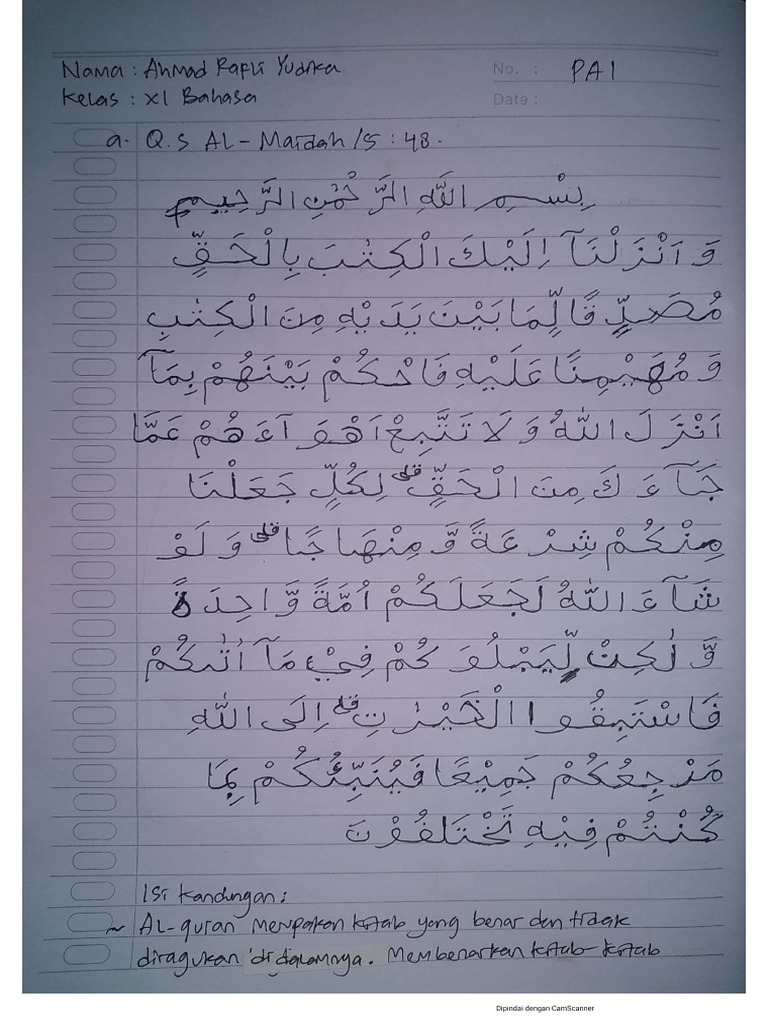 Nama : Ahmad Rafli Yudika
No. : PAI
Kelas : XI Bahasa
Date :
a. Q.S AL-Maidah/5 : 48.
بِسْمِ اللَّهِ الرَّحْمٰنِ الرَّحِيمِ
وَاَنْزَلْنَآ اِلَيْكَ الْكِتٰبَ بِالْحَقِّ
مُصَدِّقًا لِّمَا بَيْنَ يَدَيْهِ مِنَ الْكِتٰبِ
وَمُهَيْمِنًا عَلَيْهِ فَاحْكُمْ بَيْنَهُمْ بِمَآ
اَنْزَلَ اللّٰهُ وَلَا تَتَّبِعْ اَهْوَآءَهُمْ عَمَّا
جَآءَكَ مِنَ الْحَقِّ ۗ لِكُلٍّ جَعَلْنَا
مِنْكُمْ شِرْعَةً وَّمِنْهَاجًا ۗ وَلَوْ
شَآءَ اللّٰهُ لَجَعَلَكُمْ اُمَّةً وَّاحِدَةً
وَّلٰكِنْ لِّيَبْلُوَكُمْ فِيْ مَآ اٰتٰىكُمْ
فَاسْتَبِقُوا الْخَيْرٰتِ ۗ اِلَى اللّٰهِ
مَرْجِعُكُمْ جَمِيْعًا فَيُنَبِّئُكُمْ بِمَا
كُنْتُمْ فِيْهِ تَخْتَلِفُوْنَ
Isi kandungan :
~ AL-quran merupakan kitab yang benar dan tidak
diragukan didalamnya. Membenarkan kitab-kitab
Dipindai dengan CamScanner